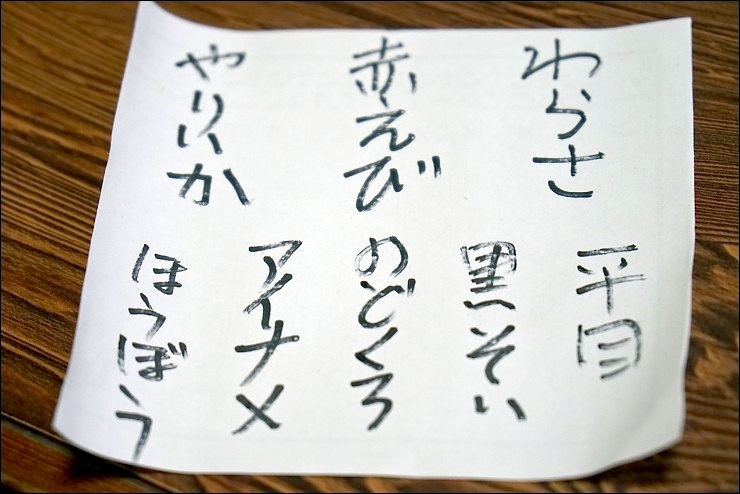 わらさ
赤えび
やりいか
平目
黒そい
のどくろ
アイナメ
ほうぼう